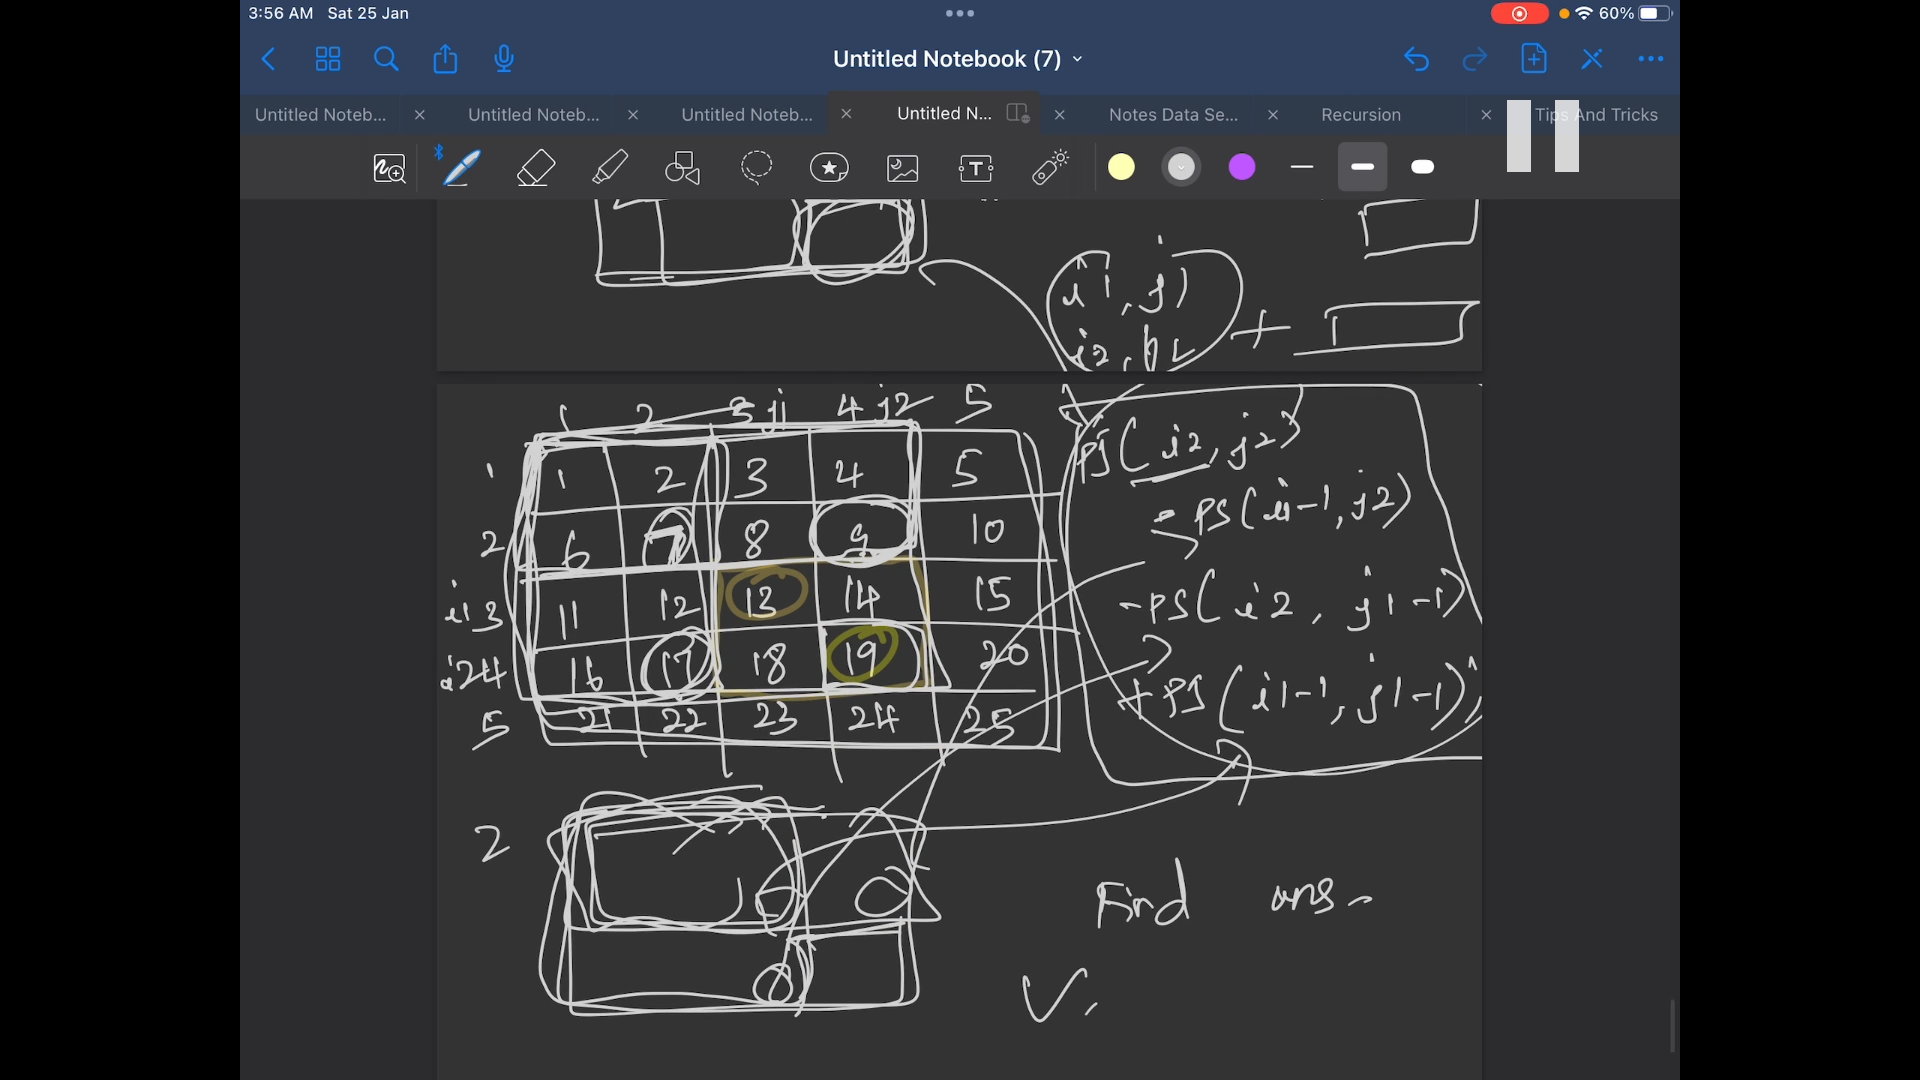 3:56 AM Sat 25 Jan
60%
Untitled Notebook (7)
Untitled Noteb...
Untitled Noteb...
Untitled Noteb...
Untitled N...
Notes Data Se...
Recursion
Tips And Tricks
T
i1, j1
+
1 2 3 j1 4 j2 5
1 1 2 3 4 5
2 6 7 8 9 10
i1 3 11 12 13 14 15
i2 4 16 17 18 19 20
5 21 22 23 24 25
PS(i2, j2)
- PS(i1-1, j2)
- PS(i2, j1-1)
+ PS(i1-1, j1-1)
2
Find ans